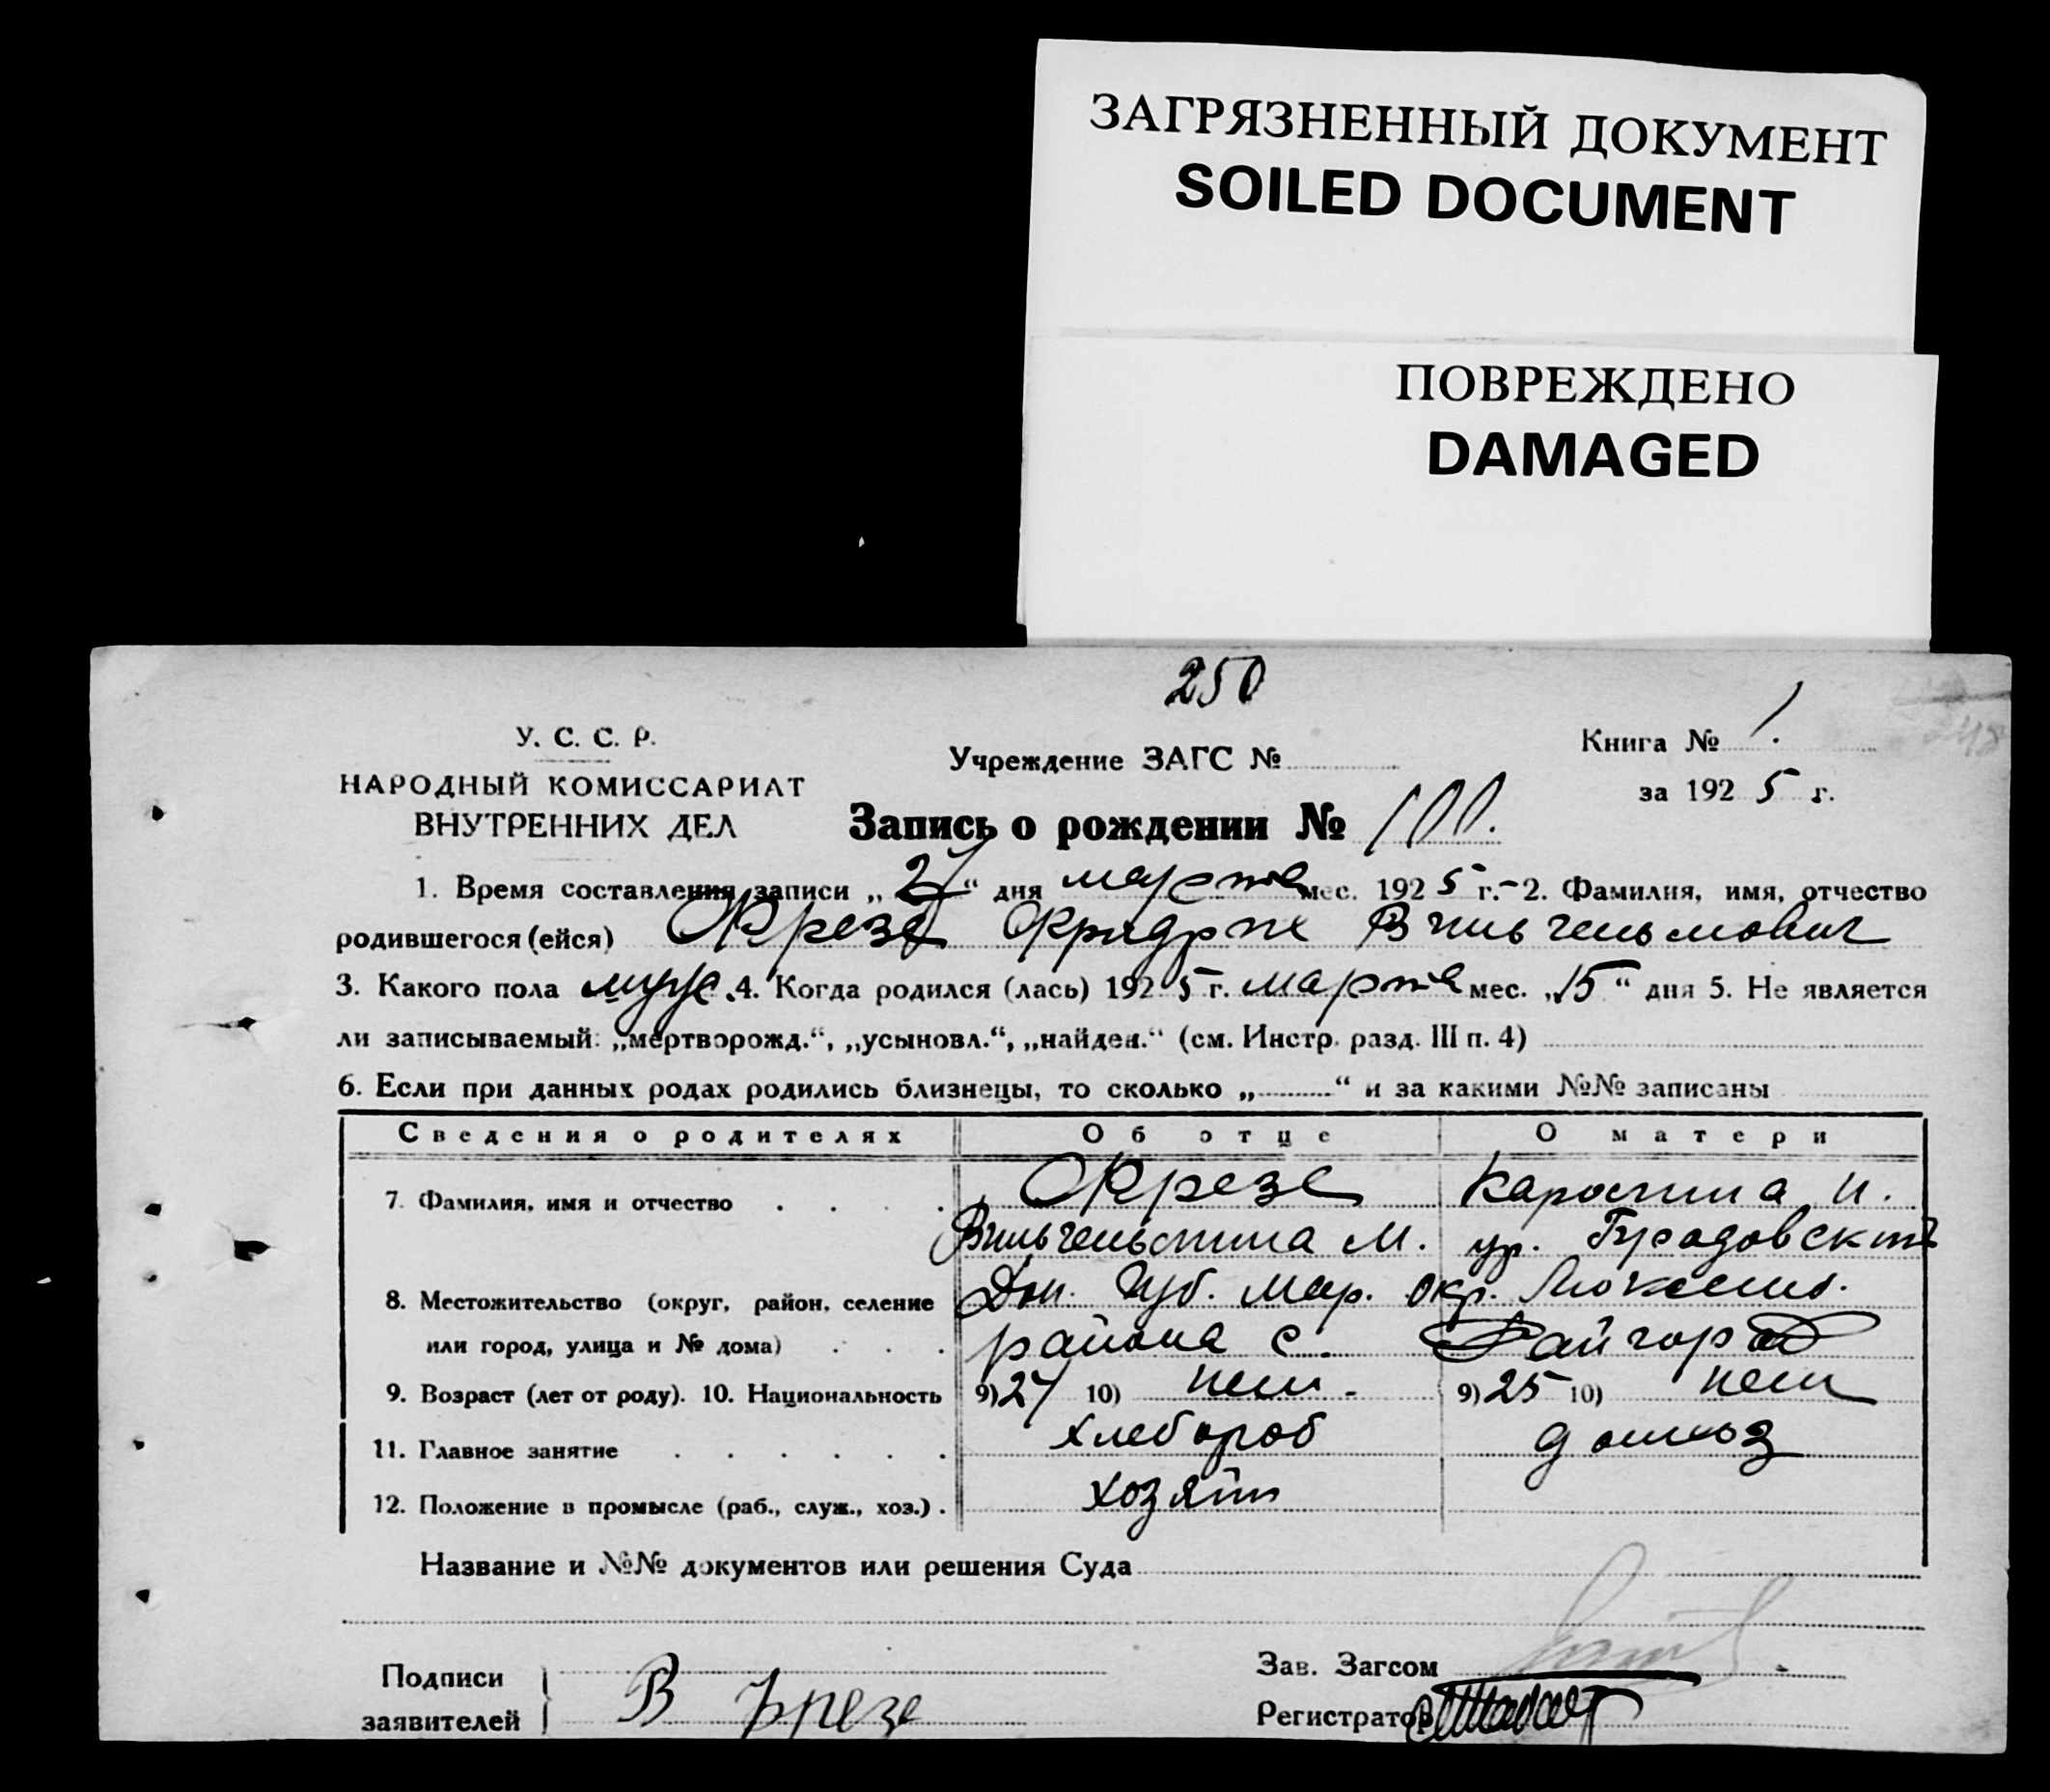 ЗАГРЯЗНЕННЫЙ ДОКУМЕНТ
SOILED DOCUMENT
ПОВРЕЖДЕНО
DAMAGED
250
У. С. С. Р.
НАРОДНЫЙ КОМИССАРИАТ
ВНУТРЕННИХ ДЕЛ
Учреждение ЗАГС №
Книга № 1.
за 1925 г.
Запись о рождении № 100.
1. Время составления записи „27“ дня марта мес. 1925 г.-2. Фамилия, имя, отчество
родившегося (ейся) Фрезе Фридрих Вильгельмович
3. Какого пола муж. 4. Когда родился (лась) 1925 г. марта мес. „15“ дня 5. Не является
ли записываемый: „мертворожд.“, „усыновл.“, „найден.“ (см. Инстр. разд. III п. 4)
6. Если при данных родах родились близнецы, то сколько „..........“ и за какими №№ записаны
Сведения о родителях Об отце О матери
7. Фамилия, имя и отчество Фрезе Каролина И.
Вильгельм М. ур.
8. Местожительство (округ, район, селение Дон. Губ. Мар. окр.
или город, улица и № дома) района с. Райгород
9. Возраст (лет от роду). 10. Национальность 9) 27 10) нем. 9) 25 10) нем
11. Главное занятие хлебороб домхоз
12. Положение в промысле (раб., служ., хоз.) хозяин
Название и №№ документов или решения Суда
Подписи
заявителей В Фрезе
Зав. Загсом
Регистратор